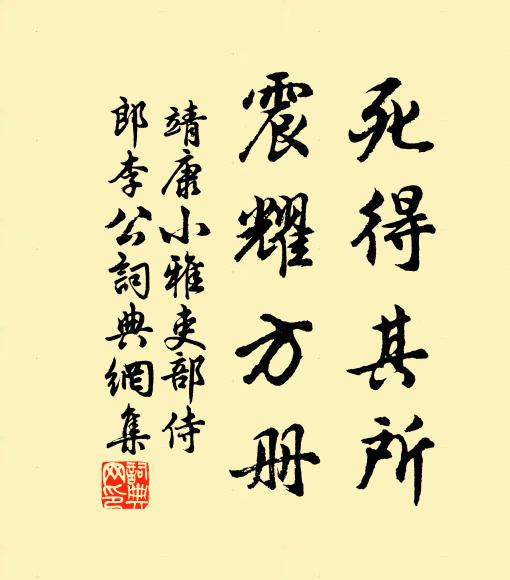 死得其所
震耀方册
靖康小雅吏部侍
郎李公詞典網集
詞典網印